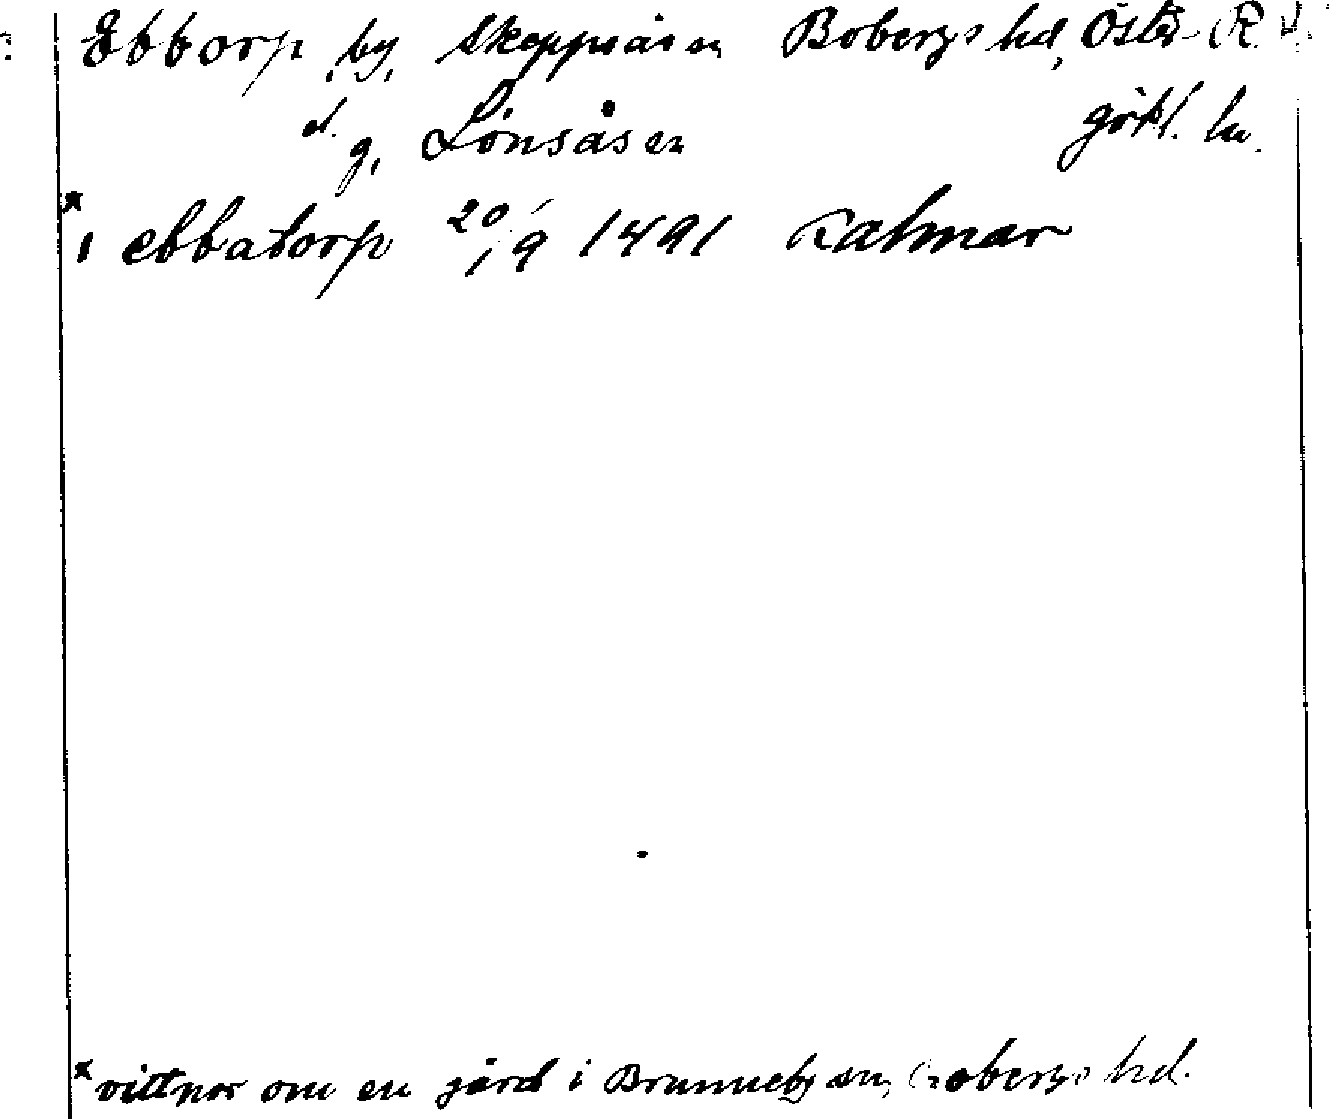 Ebbtorp, by, Skeppsåsen Bobergs hd, Öster-
el. g, Lönsåsen götl. län.
* i ebbatorp 20/9 1491 Kalmar
* vittnor om en gård i Brunneby sn, Bobergs hd.